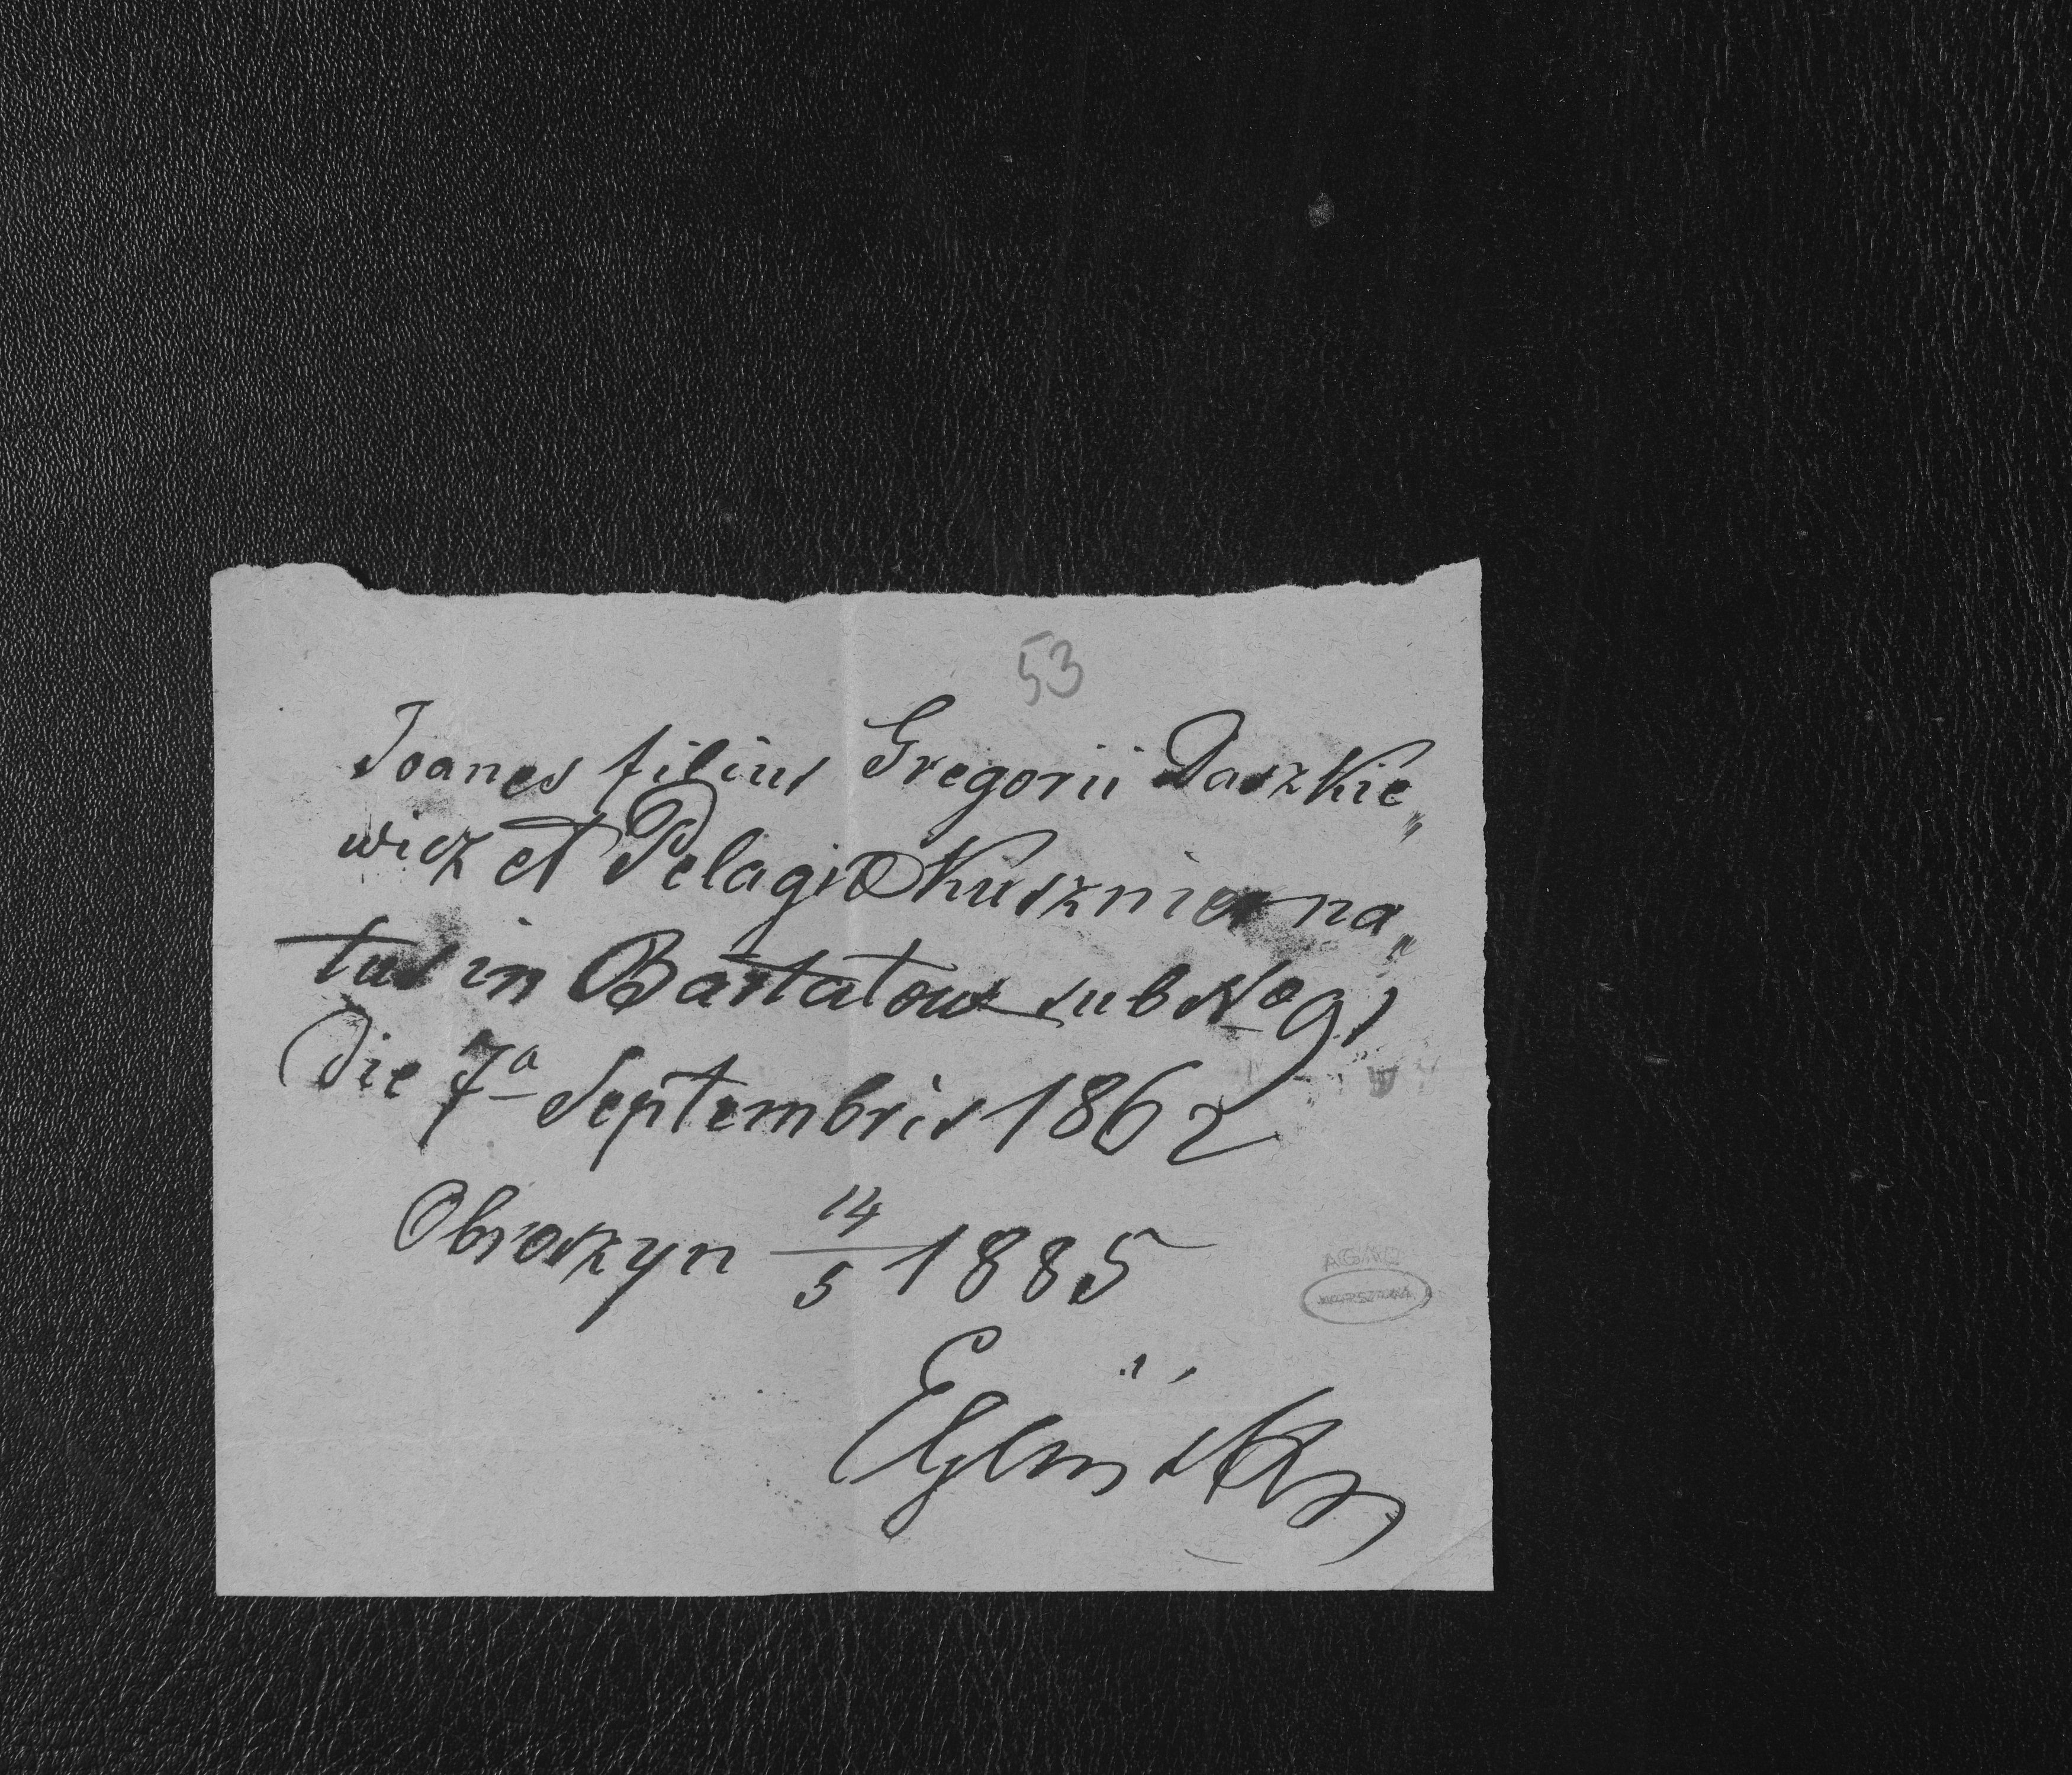 53
Joanes filius Gregorii Daszkie„
wicz et Pelagiæ Kusznier na„
tus in Bartatow sub No 91
Die 7a Septembris 1862
Obroszyn 14/5 1885